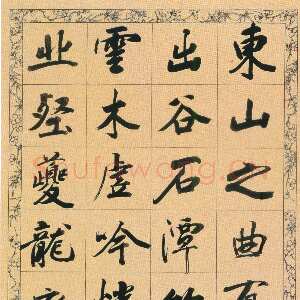 東山之曲有
出谷石潭
雲木虛吟
夔龍
Shufawang.cn